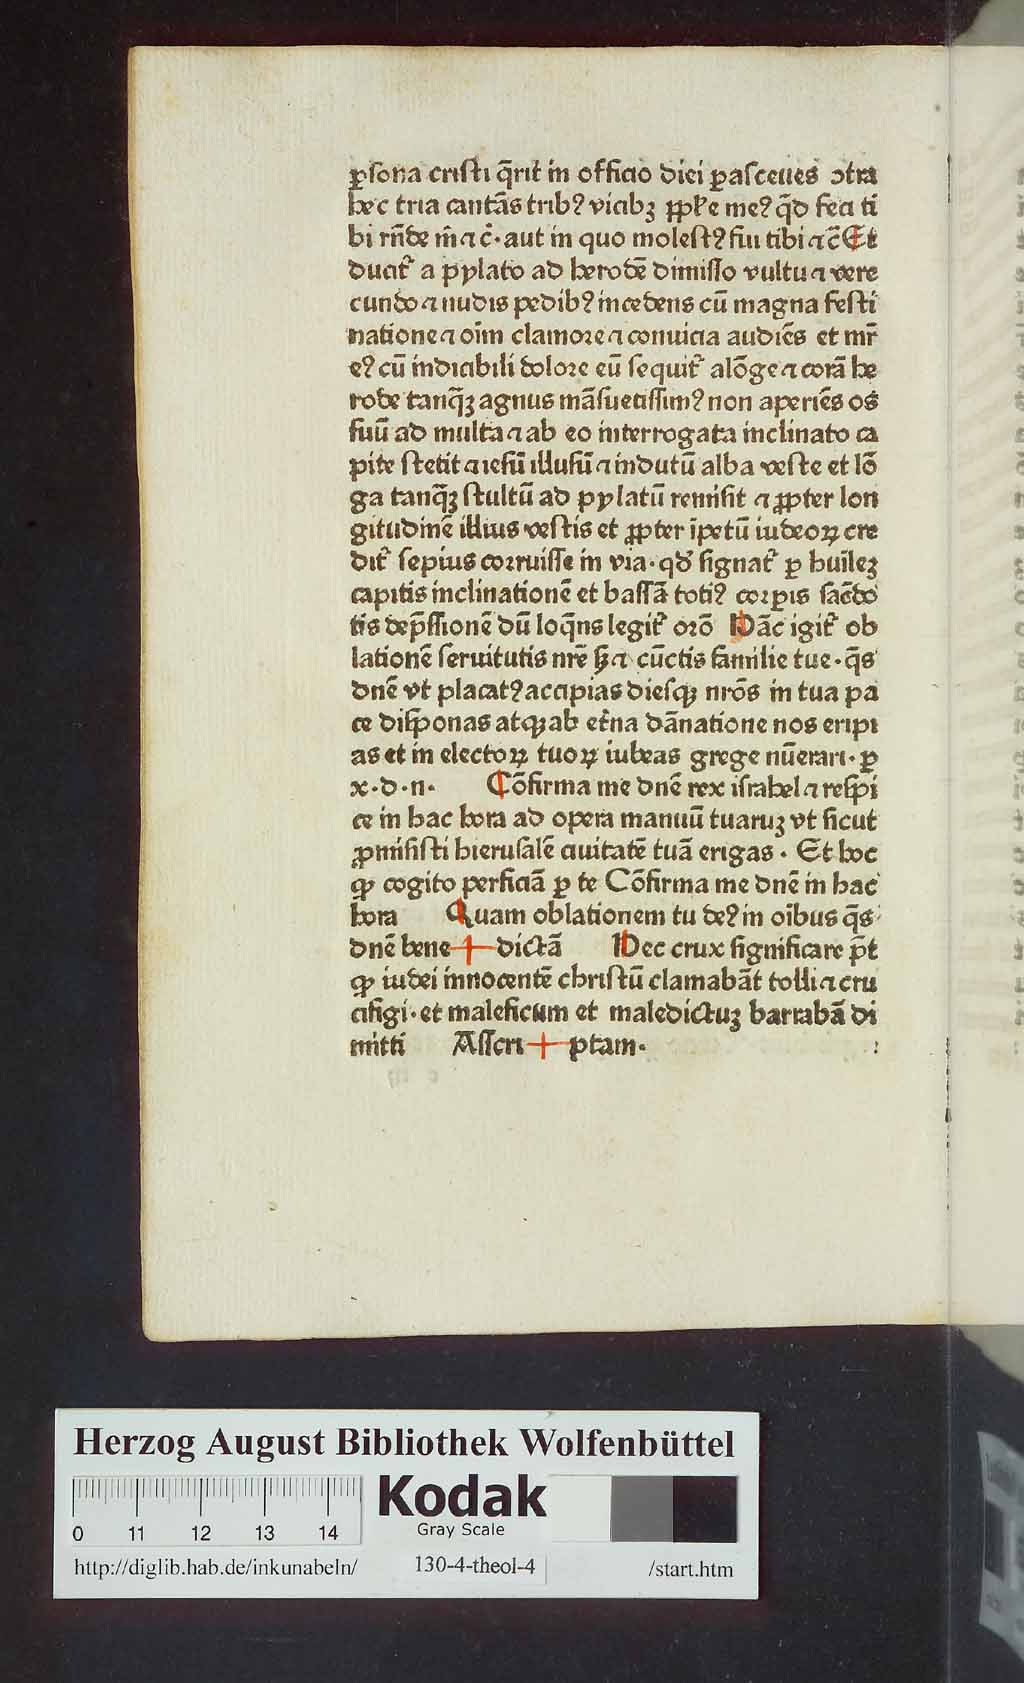 ꝑsona cristi q̄rit᷑ in officio diei ꝑasceues ↄtra
hec tria cantās tribꝰ vicibꝫ ꝓpl'e meꝰ q̄d feci ti
bi rn̄de m̄ ⁊ c̄· aut in quo molestꝰ fui tibi ⁊ c̄ Et
ducit᷑ a pylato ad herodē dimisso vultu ⁊ vere
cundo ⁊ nudis pedibꝰ incedens cū magna festi
natione ⁊ oīm clamore ⁊ conuicia audiēs et mr̄
eꝰ cū indicibili dolore eū sequit᷑ alōge ⁊ corā he
rode tanq̄ꝫ agnus māsuetissimꝰ non aperiēs os
suū ad multa ⁊ ab eo interrogata inclinato ca
pite stetit ⁊ iesū illusū ⁊ indutū alba veste et lō
ga tanq̄ꝫ stultū ad pylatū remisit ⁊ ꝓpter lon
gitudinē illius vestis et ꝓpter īpetū iudeoꝝ cre
dit᷑ sepius corruisse in via· qd' signat᷑ ꝑ huīlez
capitis inclinationē et bassā totiꝰ corꝑis sac̄do
tis dep̄ssionē dū loq̄ns legit᷑ orō Hāc igit᷑ ob
lationē seruitutis nrē sꝫ ⁊ cūctis familie tue· q̄s
dnē vt placatꝰ accipias diesqꝫ nrōs in tua pa
ce disponas atqꝫ ab et᷑na dānatione nos eripi
as et in electoꝝ tuoꝝ iubeas grege nūerari· ꝑ
x· d· n· Cōfirma me dnē rex israhel ⁊ respi
ce in hac hora ad opera manuū tuaruꝫ vt sicut
ꝓmisisti hierusalē ciuitatē tuā erigas· Et hoc
ꝙ cogito perficiā ꝑ te Cōfirma me dnē in hac
hora Quam oblationem tu deꝰ in oībus q̄s
dnē bene + dictā Hec crux significare p̄t
ꝙ iudei innocentē christū clamabāt tolli ⁊ cru
cifigi· et maleficum et maledictuꝫ barrabā di
mitti Asscri + ptam·
Herzog August Bibliothek Wolfenbüttel
Kodak
Gray Scale
0 11 12 13 14
http://diglib.hab.de/inkunabeln/ 130-4-theol-4 /start.htm